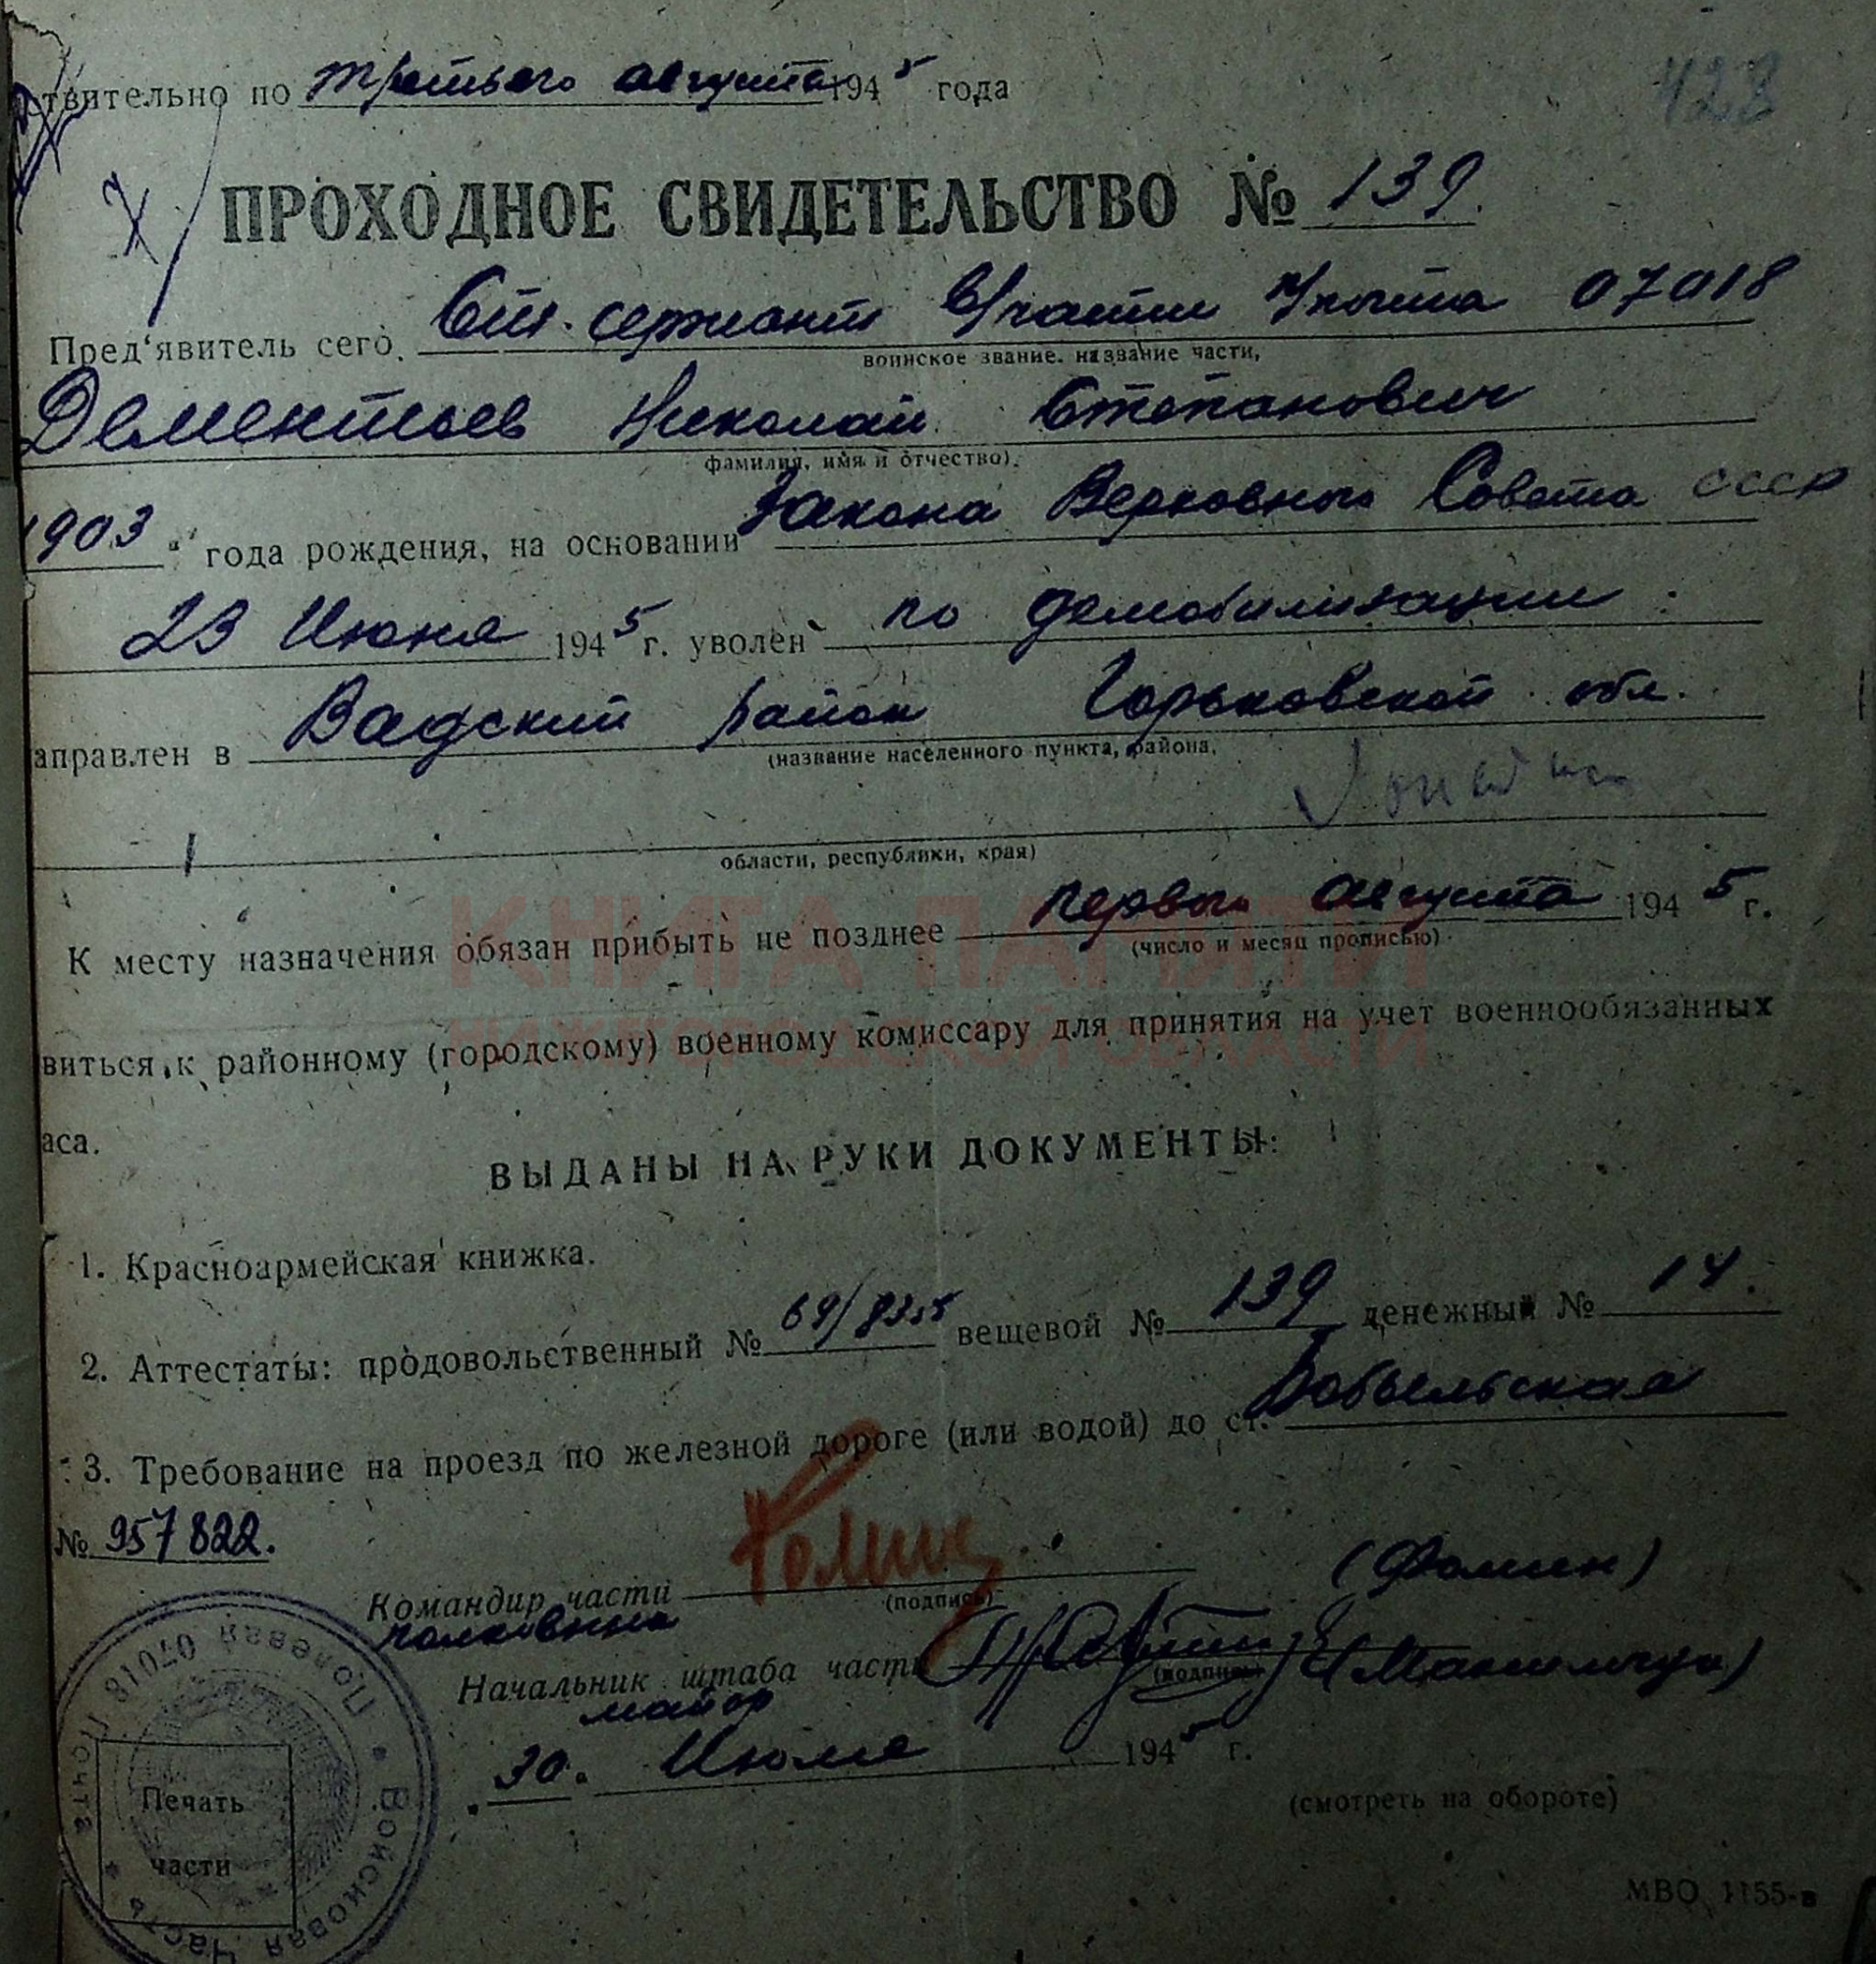 твительно по третьего августа 1945 года
428
ПРОХОДНОЕ СВИДЕТЕЛЬСТВО № 139.
Пред‘явитель сего. Ст. сержант в/части п/почта 07018
воинское звание. название части,
Дементьев Николай Степанович
фамилия, имя и отчество).
1903 года рождения, на основании Закона Верховного Совета СССР
23 Июня 1945 г. уволен по демобилизации.
аправлен в Вадский район Горьковской обл.
(название населенного пункта, района,
области, республики, края)
К месту назначения обязан прибыть не позднее первого августа 1945 г.
(число и месяц прописью)
КНИГА ПАМЯТИ
НИЖЕГОРОДСКОЙ ОБЛАСТИ
виться к районному (городскому) военному комиссару для принятия на учет военнообязанных
аса.
ВЫДАНЫ НА РУКИ ДОКУМЕНТЫ:
1. Красноармейская книжка.
2. Аттестаты: продовольственный № 69/8255 вещевой № 139 денежный № 14.
3. Требование на проезд по железной дороге (или водой) до ст. Бобыльская
№ 957822.
Командир части Фомин (Фомин)
(подпись)
полковник
Начальник штаба части
(подпись)
майор
30. Июля 1945 г.
(смотреть на обороте)
Полевая Почта 07018 * Войсковая Часть *
Печать
части
МВО 1155-в